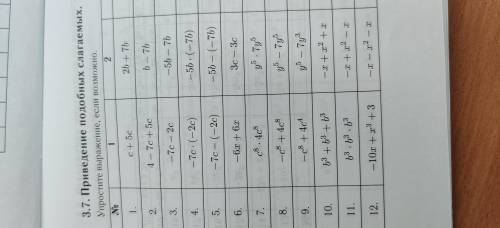 3.7. Приведение подобных слагаемых.
Упростите выражение, если возможно.
№ 1 2
1. c + 5c 2b + 7b
2. 4 − 7c + 5c b − 7b
3. −7c − 2c −5b − 7b
4. −7c · (−2c) −5b · (−7b)
5. −7c − (−2c) −5b − (−7b)
6. −6x + 6x 3c − 3c
7. c⁸ · 4c⁸ y⁵ · 7y⁵
8. −c⁸ + 4c⁸ y⁵ − 7y⁵
9. −c⁸ + 4c⁴ y⁵ − 7y³
10. b³ + b³ + b³ −x + x² + x
11. b³ · b³ · b³ −x + x² − x
12. −10x + x³ + 3 −x − x² − x